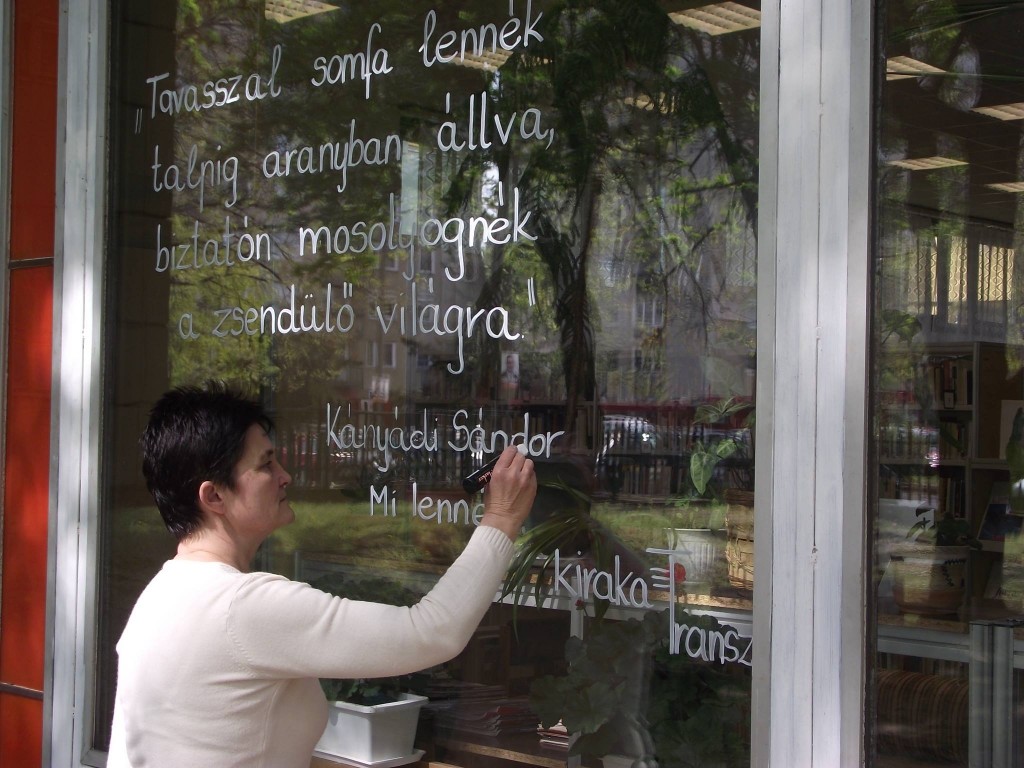 „Tavasszal somfa lennék
talpig aranyban állva,
biztatón mosolyognék
a zsendülő világra."
Kányádi Sándor
Mi lenne
kirakaT
Transz